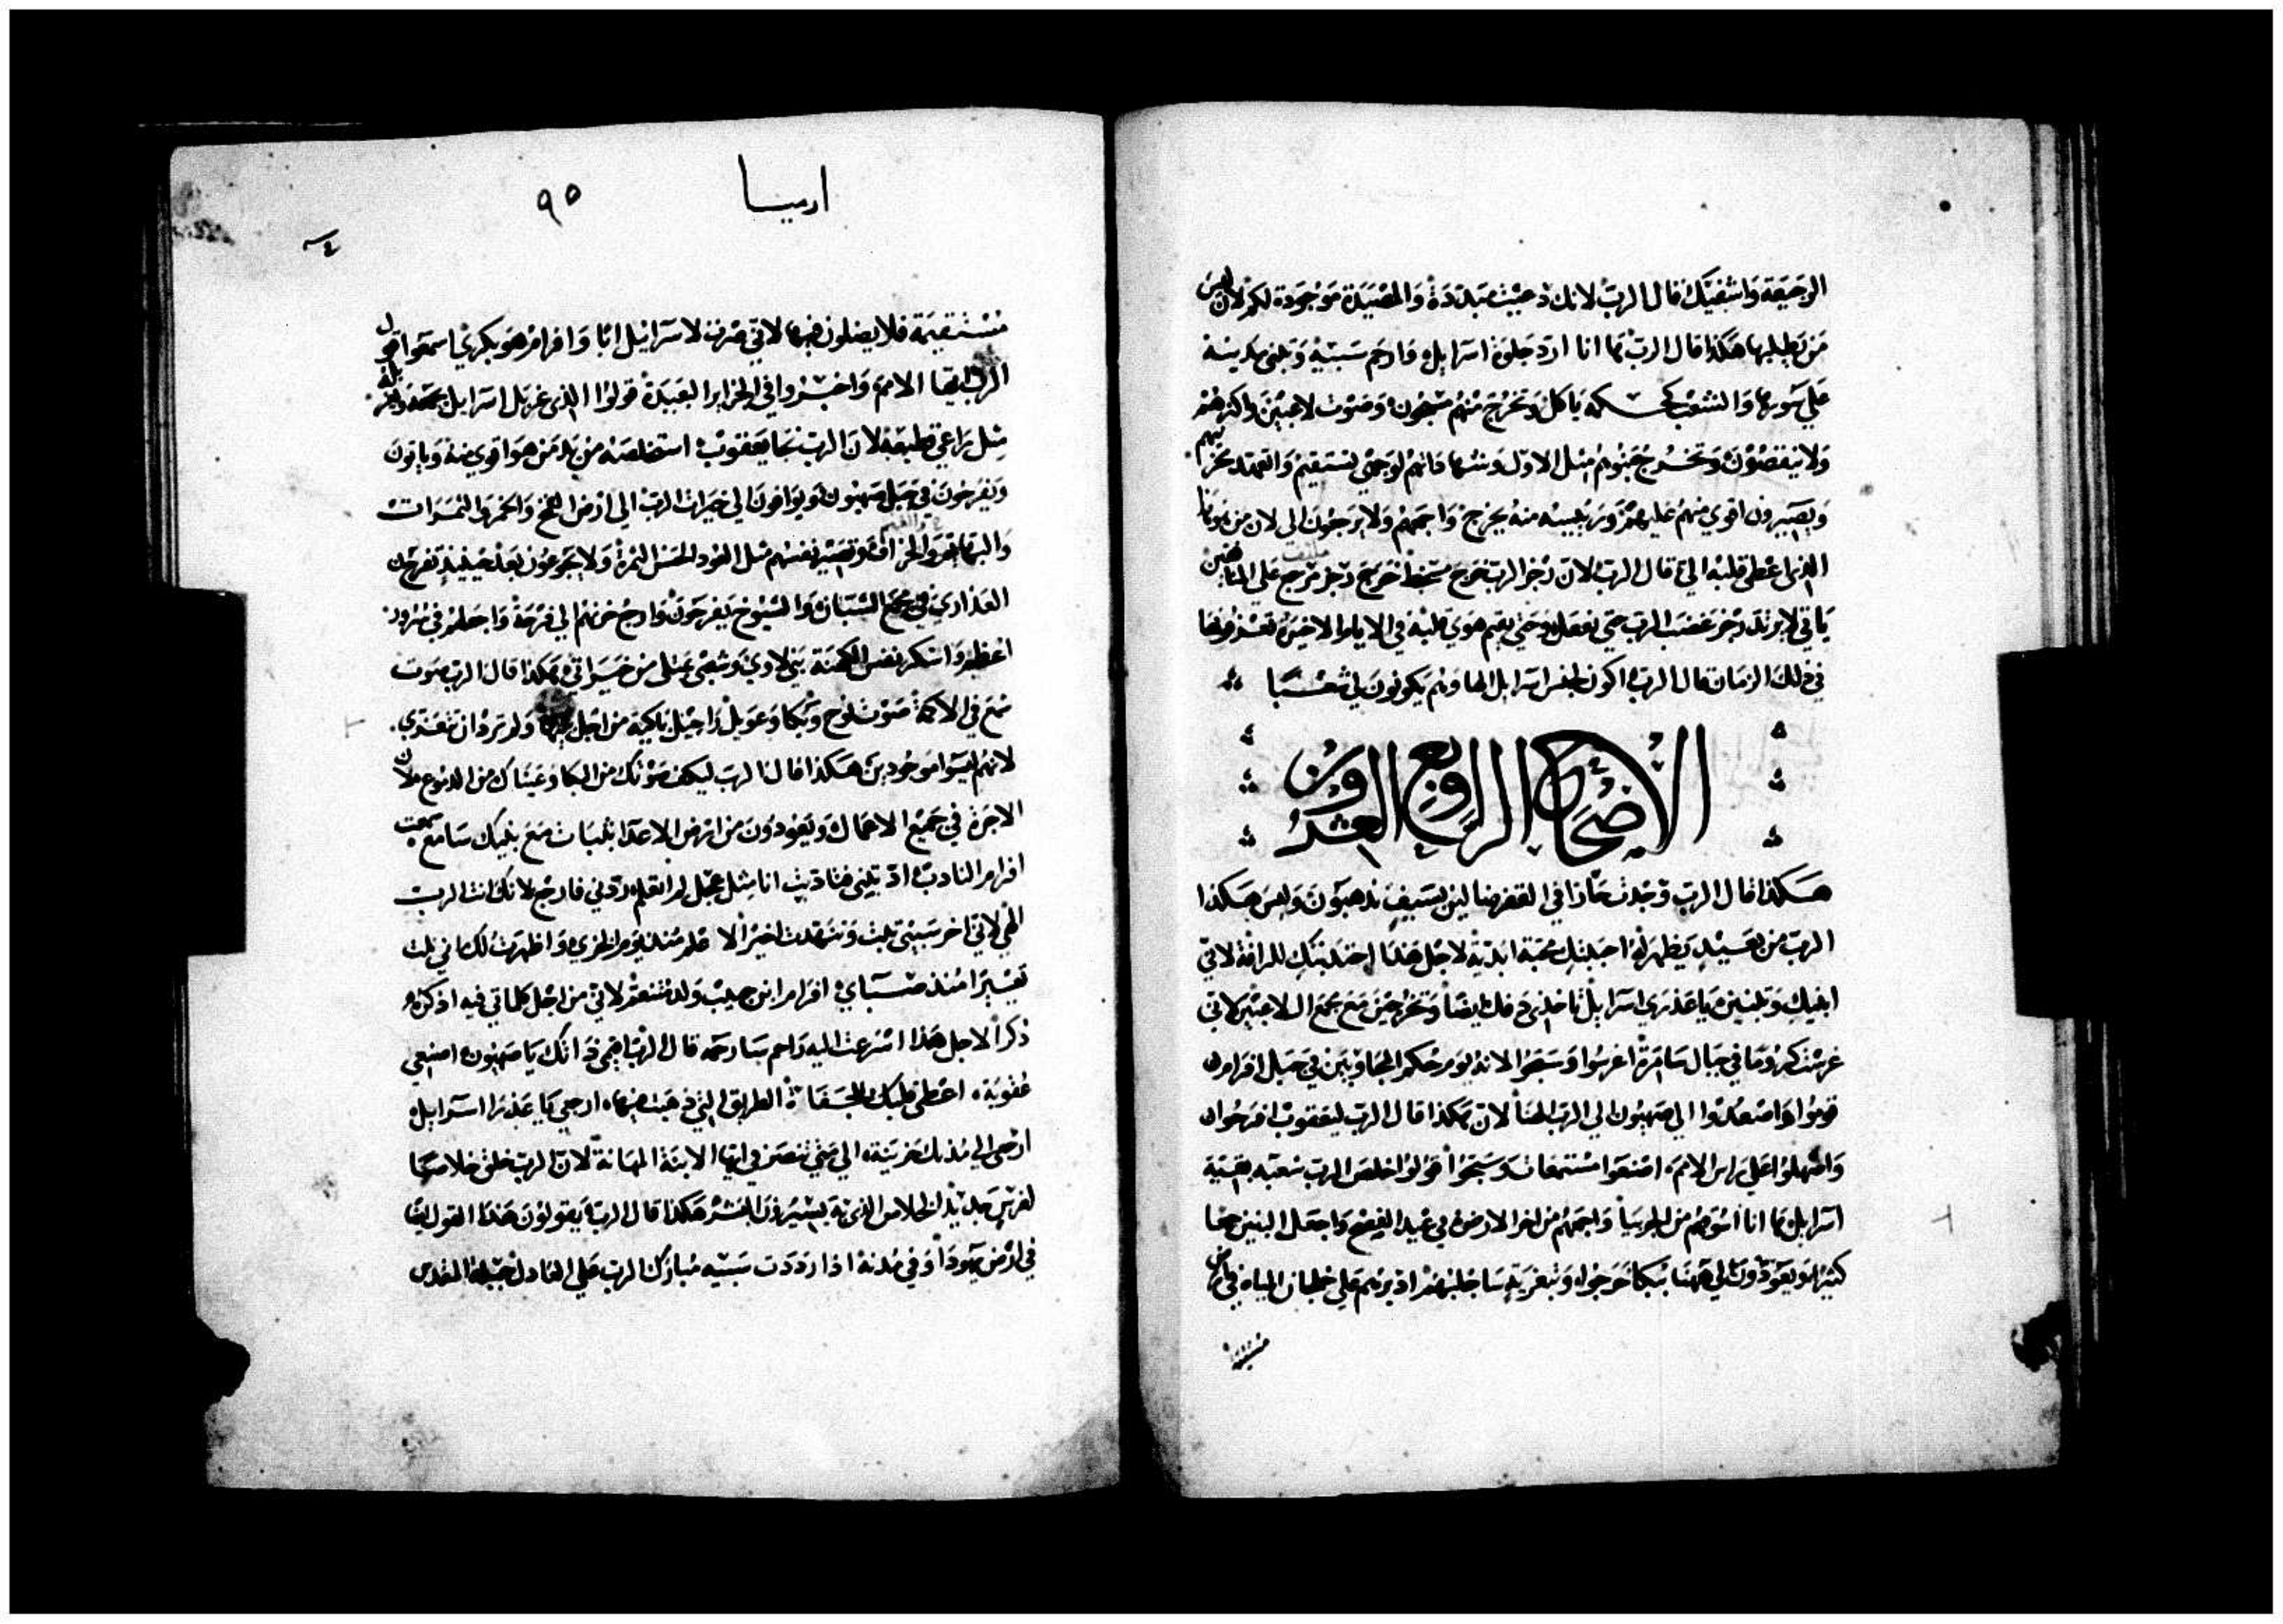 الوجيعة واشفيك قال الرب لانك دعيت مبددة والمصيدة موجودة لكم لان ليس
من يطلبها هكذا قال الرب ها انا ارد جلوة اسرايل وارحم سبيه وتبنى مدينه
على سورها والشعب كحكمه ياكل وتخرج منهم مسبحون وصوت لاعبين واكثرهم
ولا ينقصون وتخرج بنوهم مثل الاول وشهاداتهم لوجهي تستقيم واتعهد
ويصيرون اقوى منهم عليهم وريسه منه يخرج واجمعهم ولا يرجعون الي لان من هو هذا
الذي اعطى قلبه الي قال الرب لان رجز الرب خرج سخط خرج رجز مرجع على المنافقين
ياتي لا يرتد رجز غضب الرب حتى يفعل وحتى يقيم هوى قلبه في الايام الاخيرة تعرفونها
في ذلك الزمان قال الرب اكون لجنس اسرايل الها وهم يكونون لي شعبا
الاصحاح الرابع والعشرون
هكذا قال الرب وجدت حارا في القفر ضالين بسيف تذهبون وليس هكذا
الرب من بعيد يظهر له احببتك محبة ابدية لاجل هذا اجتذبتك للرافة لاني
ابنيك وتبنين يا عذرى اسرايل تاخذى دفك ايضا وتخرجين مع مجمع اللاعبين لاني
غرست كروما في جبال سامرة اغرسوا وسبحوا لانه يوم حكم المجاوبين في جبل افرام
قوموا واصعدوا الى صهيون الى الرب الهنا لان هكذا قال الرب ليعقوب افرحوا
واصهلوا على راس الامم اصنعوا مستمعات وسبحوا قولوا خلص الرب شعبه بقية
اسرايل ها انا اسوقهم من الجربيا واجمعهم من اخر الارض في عيد الفصح واجعل البنين جمعا
كثيرا ويعودون الى ههنا ببكا خرجوا وبتعزية ساجلبهم اذ يرهم على خلجان المياه في ارض
مستقيمة
ارميا ٩٥
مستقيمة فلا يضلون فيها لاني صرت لاسرايل ابا وافرام هو بكري اسمعوا قول
الرب ايها الامم واخبروا في الجزاير البعيدة قولوا الذي غربل اسرايل يجمعه
مثل راعي قطيعه لان الرب نجا يعقوب استخلصه من يد من هو اقوى منه وياتون
ويفرحون في جبل صهيون ويوافون الى خيرات الرب الى ارض القمح والخمر والثمرات
والبهايم والخراف وتصير نفسهم مثل العود الحسن الثمرة ولا يجوعون بعد حينيذ تفرحن
العذارى في مجمع الشبان والشيوخ يفرحون وارجع حزنهم الى فرحة واجعلهم في سرور
اعظم واسكر نفس الكهنة بني لاوي وشعبي يمتلي من خيراتي هكذا قال الرب صوت
سمع في الاكمة صوت نوح وبكا وعويل راحيل باكية من اجل بنيها ولم ترد ان تتعزى
لانهم ليسوا موجودين هكذا قال الرب ليكف صوتك من البكا وعيناك من الدموع لان
الاجرة في جميع الاعمال ويعودون من ارض الاعدا بثبات مع بنيك سامع سمعت
افرام النادب ادبتني فتادبت انا مثل عجل لم اتعلم ردني فارجع لانك انت الرب
الهي لاني اخر سبيي تبت وتنهدت اخيرا لا علم منذ يوم الخزي واظهرت لك اني نلت
تعييرا منذ صباي افرام ابن حبيب ولد متنعم لاني من اجل كلماتي فيه اذكره
ذكرا لاجل هذا اسرعت اليه راحم سارحمه قال الرب اقيمي ذاتك يا صهيون اصنعي
عقوبة اعطى قلبك للجفاة الطريق التي ذهبت فيها ارجعي يا عذرا اسرايل
ارجعي الى مدنك حزينة الى متى تنصرفي ايتها الابنة المهانة لان الرب خلق خلاصا
لغرس جديد الخلاص الذي به يسيرون البشر هكذا قال الرب يقولون هذا القول ايضا
في ارض يهودا وفي مدنه اذا رددت سبيه مبارك الرب على العادل جبله المقدس